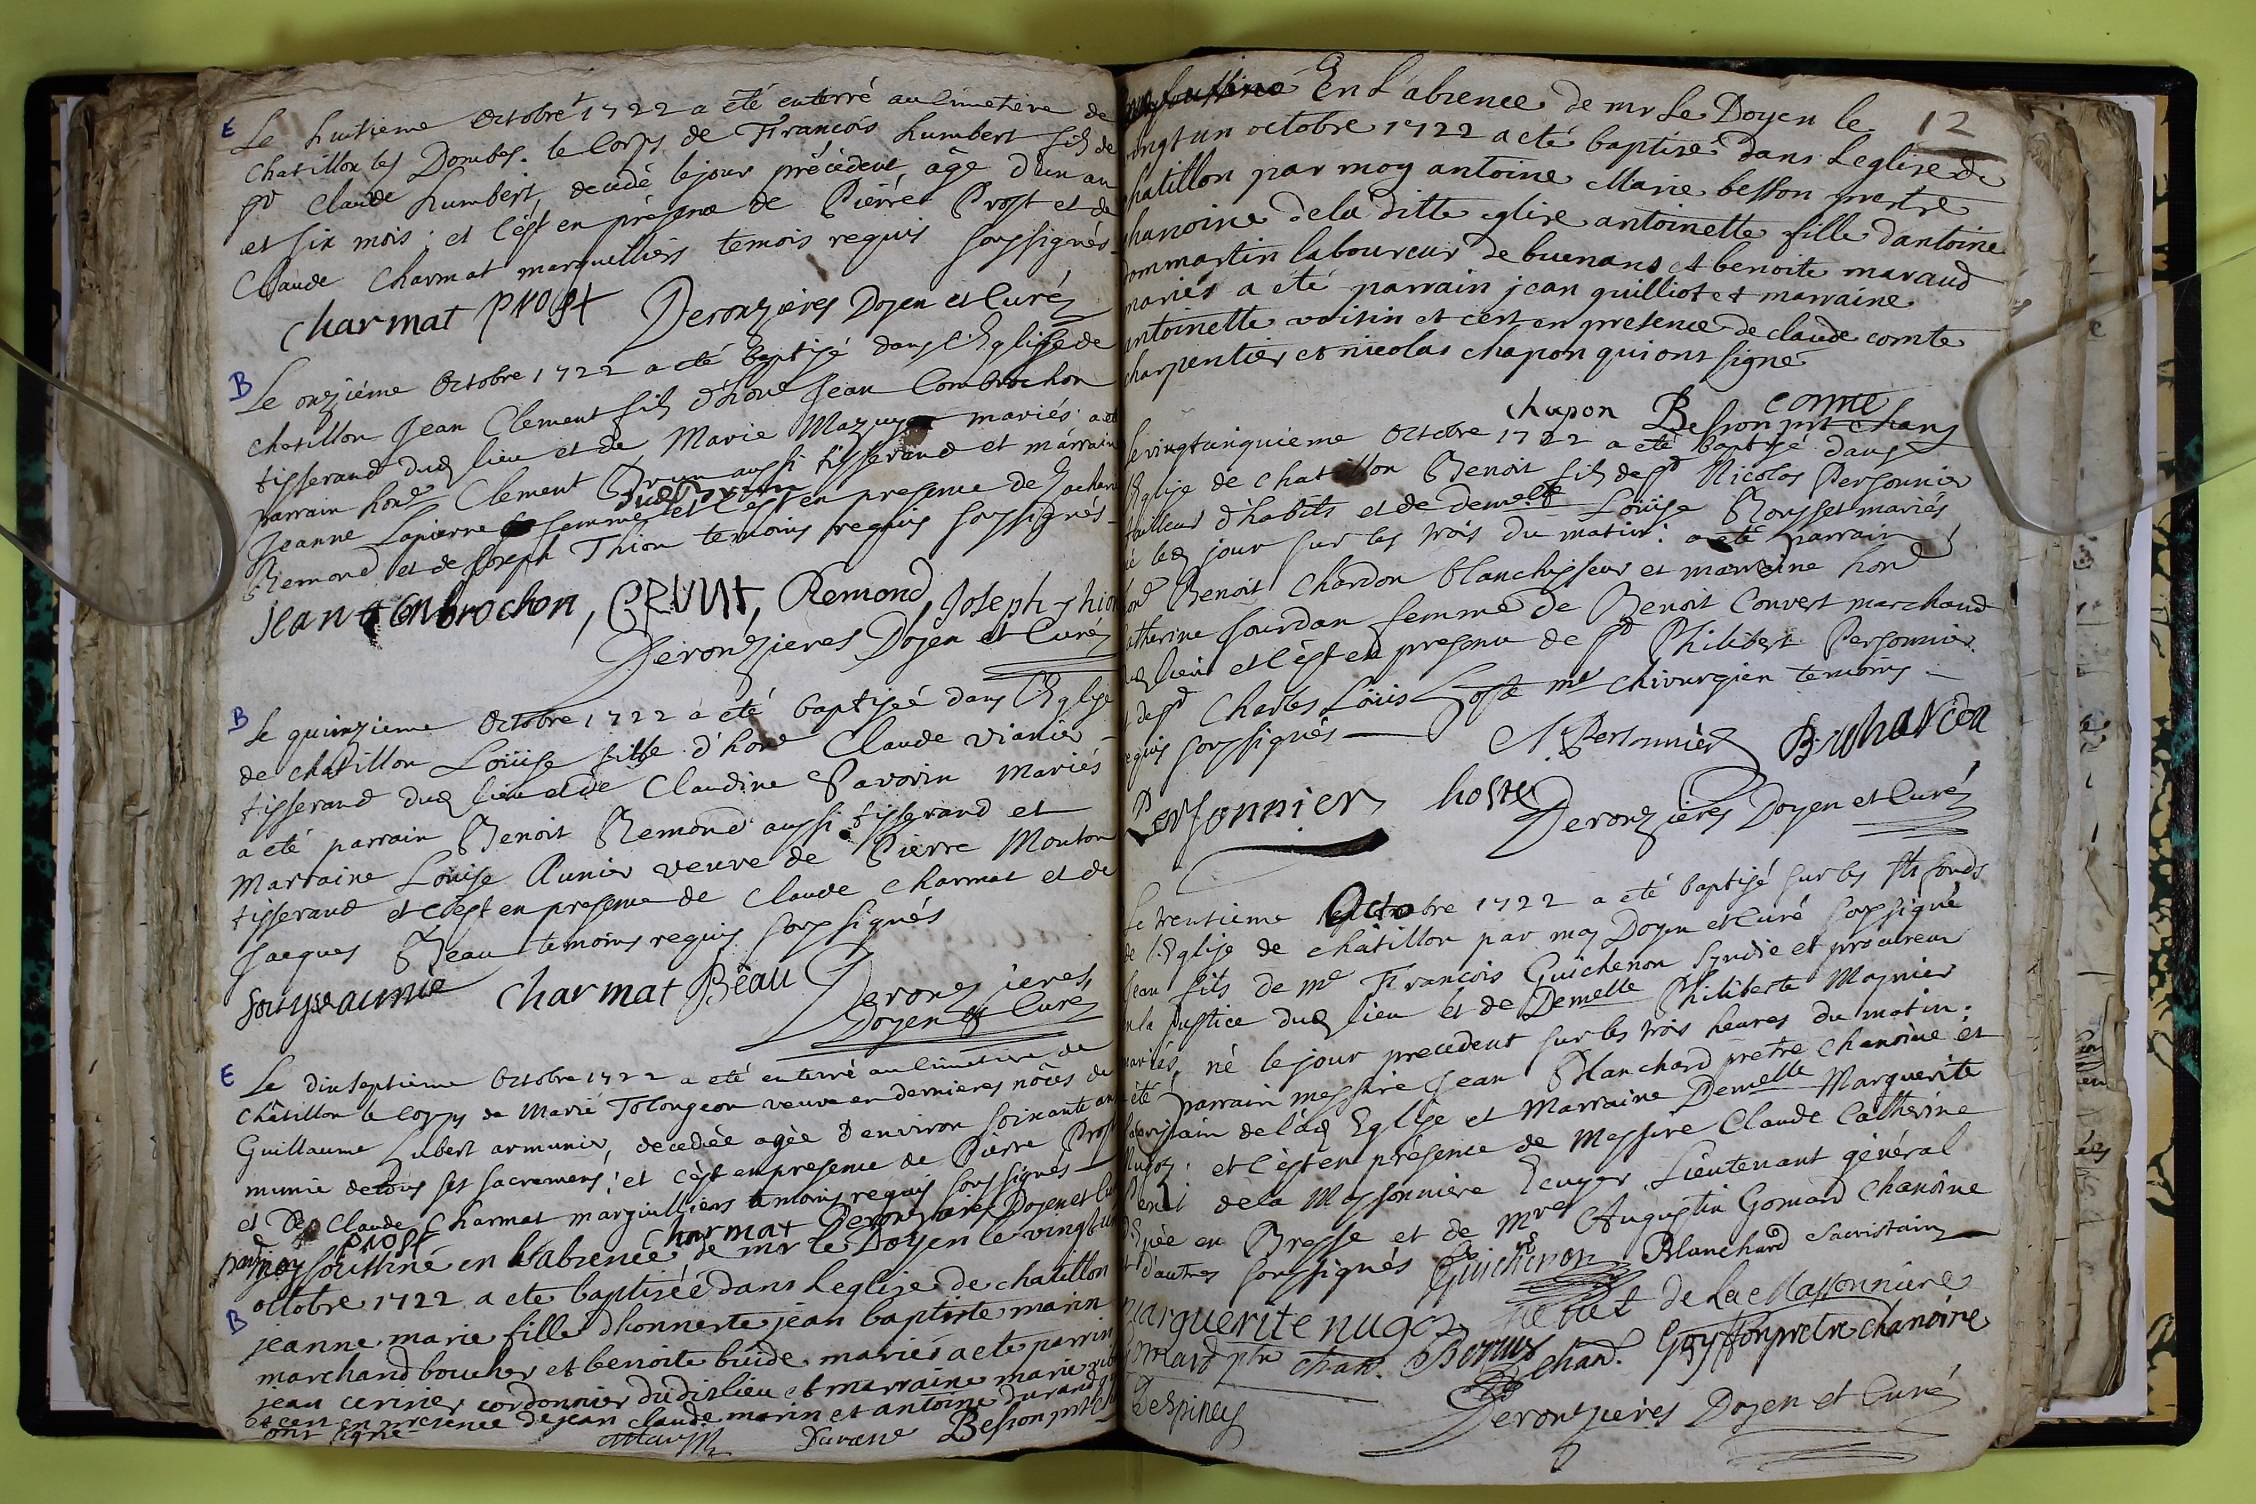 E
Le huitieme Octobre 1722 a été enterré au Cimetiere de
Chatillon les Dombes. le Corps de François humbert fils de
Sr Claude humbert, decedé le jour précédent, âgé d'un an
et six mois; et c'est en présence de Piérre Prost et de
Claude Charmat marguilliers temois requis soussignés
Charmat prost Deronzieres Doyen et Curé
B
Le onziéme Octobre 1722 a été baptisé dans l'Eglise de
chatillon Jean Clement fils d'hone Jean Combrochon
tisserand dud lieu et de Marie Mazuy mariés. a été
parrain hone Clement Brun aussi tisserand et marraine
Jeanne Lapierre femme dud Brun et c'est en presence de Zacherie
Remond et de Joseph Thion temoins requis soussignés
Jean Conbrochon, BRUN, Remond, Joseph thion
Deronzieres Doyen et Curé
B
Le quinzieme Octobre 1722 a été baptisée dans l'Eglise
de chatillon Loüise fille d'hone Claude Vianier
tisserand dud lieu et de Claudine Pavorin Mariés
a été parrain Benoit Remond aussi tisserand et
Marraine Loüise Aunier veuve de Pierre Mouton
tisserand et c'est en presence de Claude Charmat et de
Jacques Beau temoins requis soussignés
Charmat Bêau Deronzieres,
Doyen et Curé
E
Le dixseptiéme Octobre 1722 a été enterré au Cimetiere de
Châtillon le Corps de Marie Tolongeon veuve en dernieres nôces de
Guillaume Lubert armunier, decedée agée d'environ soixante ans
munie de tous ses sacremens; et c'est en presence de Pierre Prost
et de Claude Charmat marguilliers temoins requis soussignés
prost Charmat Deronzieres Doyen et Curé
par moy soussiné en l'absence de mr le Doyen le vingt un
B
octobre 1722 a eté baptiséé dans leglise de chatillon
jeanne marie fille dhonneste jean baptiste marin
marchand boucher et benoite buide mariés a eté parrin
jean cerisier cordonnier dudit lieu et marraine marie
et cest en presence de jean claude marin et antoine durand qui
ont signé Marin Durand Besson prtr ch
12
En l'absence de mr le Doyen le
vingt un octobre 1722 a eté baptisé dans leglise de
chatillon par moy antoine Marie besson prestre
chanoine de la ditte eglise antoinette fille dantoine
dommartin laboureur de buenans et benoite maraud
mariés a été parrain jean guilliot et marraine
antoinette voisin et cest en presence de claude comte
charpentier et nicolas chapon qui ont signé
chapon comte Besson prt chan
Le vingtcinquieme Octobre 1722 a été baptisé dans
l'Eglise de chatillon Benoit fils de Sr Nicolas Personnier
tailleur d'habits et de demelle Loüise Rousset mariés
né led jour sur les trois du matin: a été parrain
hone Benoit Chardon blanchisseur et marraine hone
Catherine Jourdan femme de Benoit Convert marchand
dud lieu et c'est en presence de Sr Philibert Personnier
et de Sr Charles Loüis hoste me Chirurgien temoins
requis soussignés N. Personnier B. Chardon
Personnier hoste Deronzieres Doyen et Curé
Le trentieme Octobre 1722 a été baptisé sur les sts fonds
de l'Eglise de châtillon par moy Doyen et Curé soussigné
Jean fils de me François Guichenon Syndic et procureur
en la Justice dud lieu et de Demelle Philiberte Moynier
mariés, né le jour precedent sur les trois heures du matin:
a été parrain messire Jean Blanchard prêtre chanoine et
sacristain de lad Eglise et Marraine Demelle Marguerite
Nugoz. et c'est en présence de Messire Claude Catherine
Penet de la Massonniere Ecuyer Lieutenant général
d'Epée en Bresse et de Mre Augustin Gomard Chanoine
et d'autres soussignés Guichenon Blanchard Sacristain
marguerite nugoz Penet de la Massonniere
Gomard ptr chan. chan. Goyffon pretre chanoine
Despiney Deronzieres Doyen et Curé